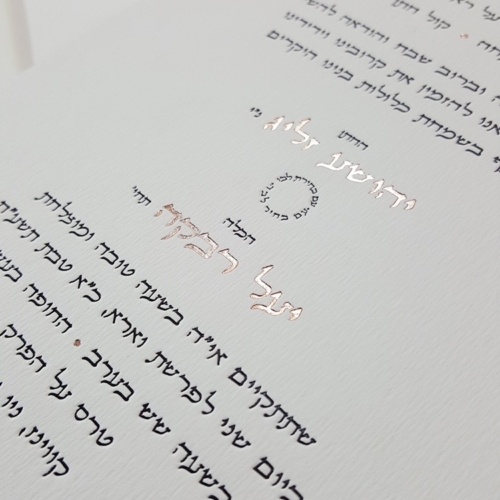 קול חתן
וברוב שבח והודאה
אנו להזמין את קרובינו וידידינו
בשמחת כלולות בנינו היקרים
החתן
יהושע זליג
ני״ו
הכלה
יעל רבקה
תחי׳
שתתקיים אי״ה בשעה טובה ומוצלחת
ביום שני לפרשת וארא, כ״א טבת תשע״ח
בשעה שש בערב • החופה
טרס על הפרק
קווינז, ניו